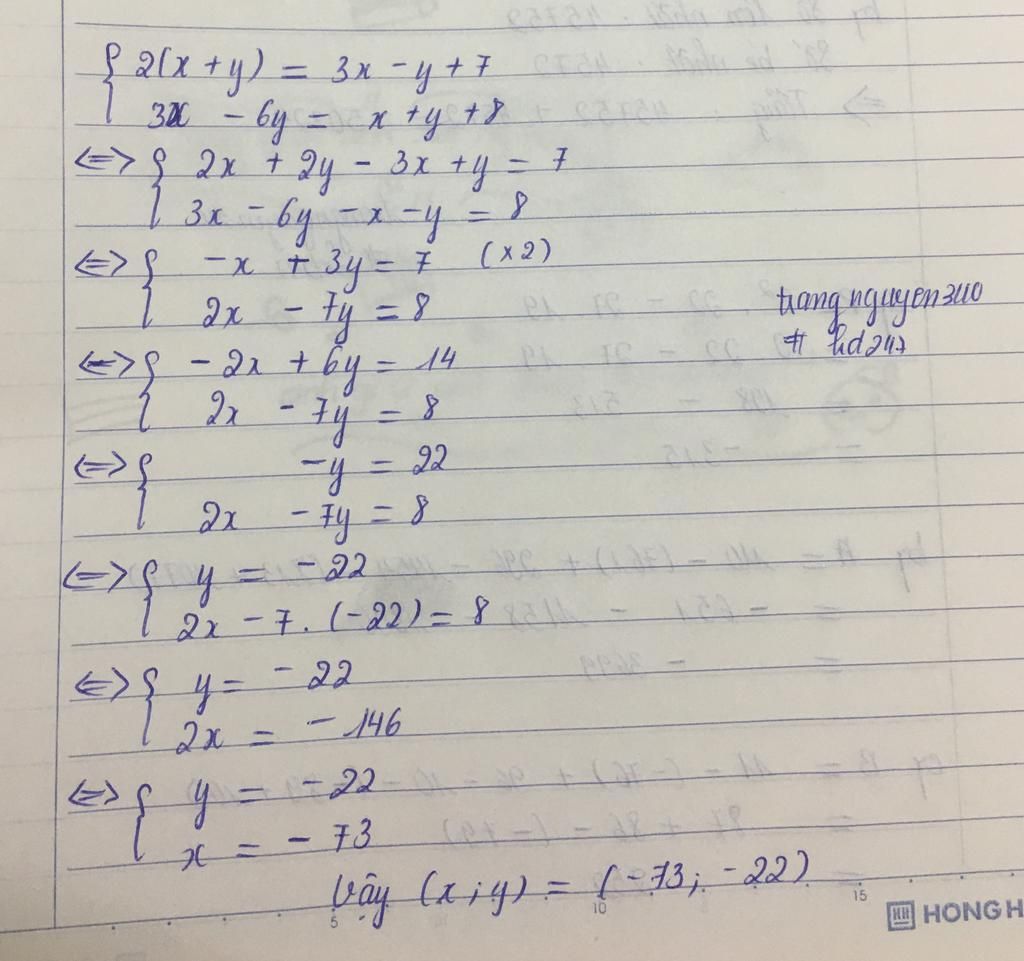 { 2(x + y) = 3x - y + 7
3x - 6y = x + y + 8
<=> { 2x + 2y - 3x + y = 7
3x - 6y - x - y = 8
<=> { -x + 3y = 7 (x2)
2x - 7y = 8
trangnguyen3uo
# hd247
<=> { -2x + 6y = 14
2x - 7y = 8
<=> { -y = 22
2x - 7y = 8
<=> { y = -22
2x - 7. (-22) = 8
<=> { y = -22
2x = -146
<=> { y = -22
x = -73
Vậy (x; y) = (-73; -22)
5 10 15
HONG H